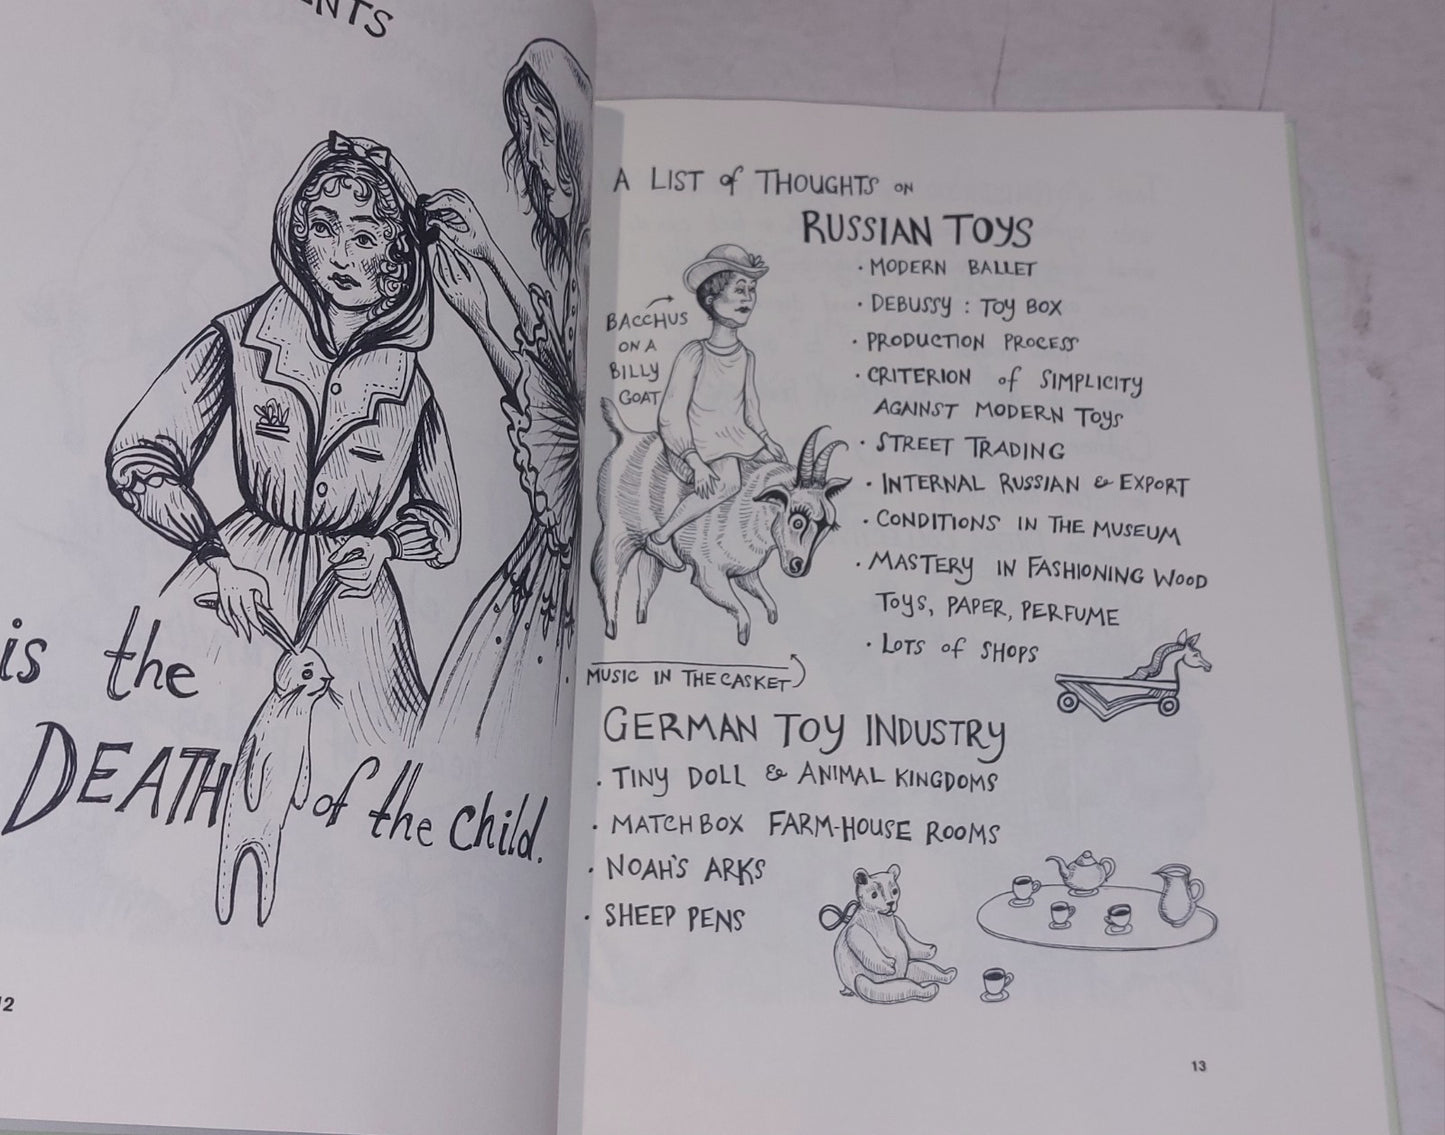 is the
DEATH of the child.
12
A LIST of THOUGHTS ON
RUSSIAN TOYS
BACCHUS
ON A
BILLY
GOAT
· MODERN BALLET
· DEBUSSY : TOY BOX
· PRODUCTION PROCESS
· CRITERION of SIMPLICITY
AGAINST MODERN TOYS
· STREET TRADING
· INTERNAL RUSSIAN & EXPORT
· CONDITIONS IN THE MUSEUM
· MASTERY IN FASHIONING WOOD
TOYS, PAPER, PERFUME
· LOTS of SHOPS
· MUSIC IN THE CASKET
GERMAN TOY INDUSTRY
· TINY DOLL & ANIMAL KINGDOMS
· MATCHBOX FARM-HOUSE ROOMS
· NOAH'S ARKS
· SHEEP PENS
13